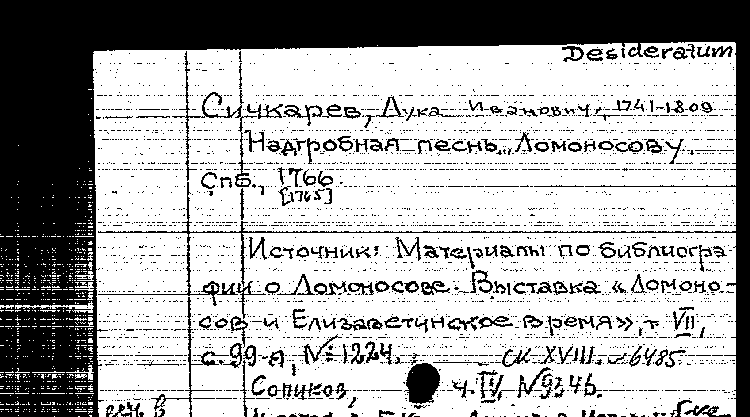 Desideratum
Сичкарев, Лука Иванович, 1741-1809
Надгробная песнь... Ломоносову.
Спб., 1766.
[1765]
Источник: Материалы по библиогра
фии о Ломоносове. Выставка «Ломоно-
сов и Елизаветинское время», т. VII,
с. 99-я, № 1224. СК XVIII. - 6485
Сопиков, ч. IV, № 9346.
есть в